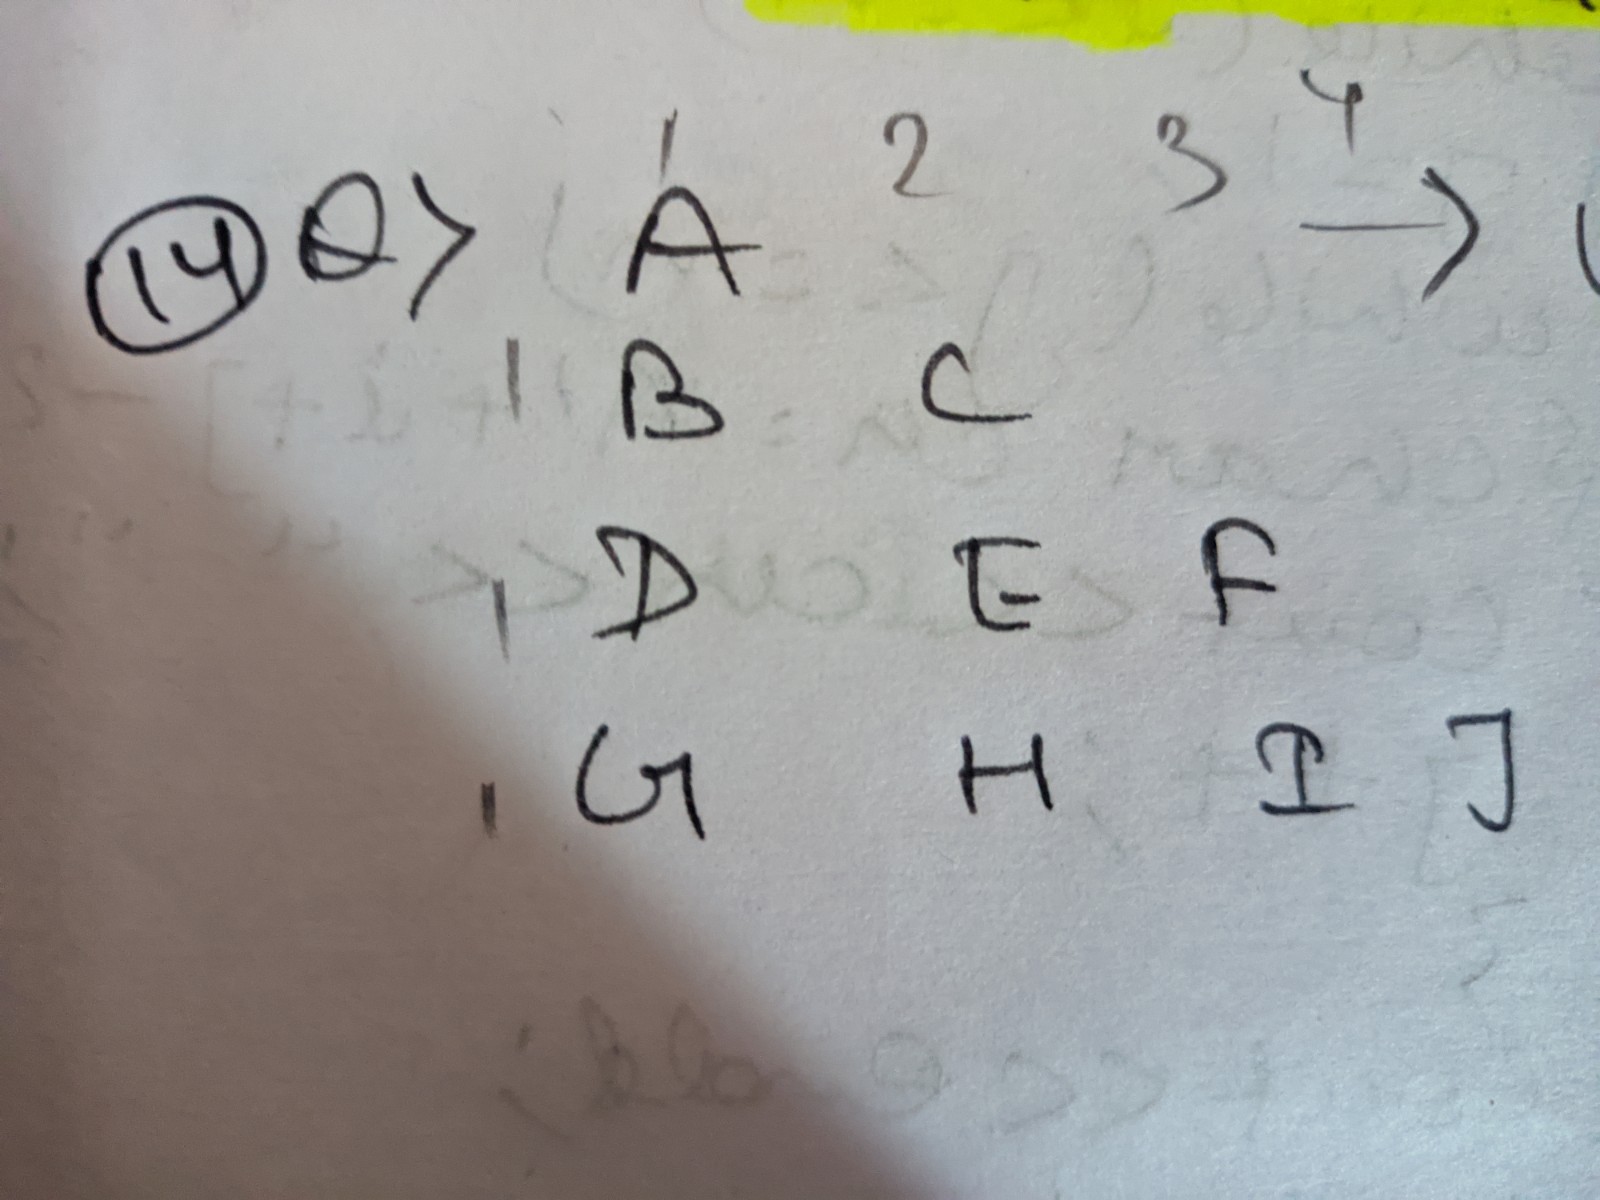 1 2 3 4
14 Q> A →
1 B C
1 D E F
1 G H I J